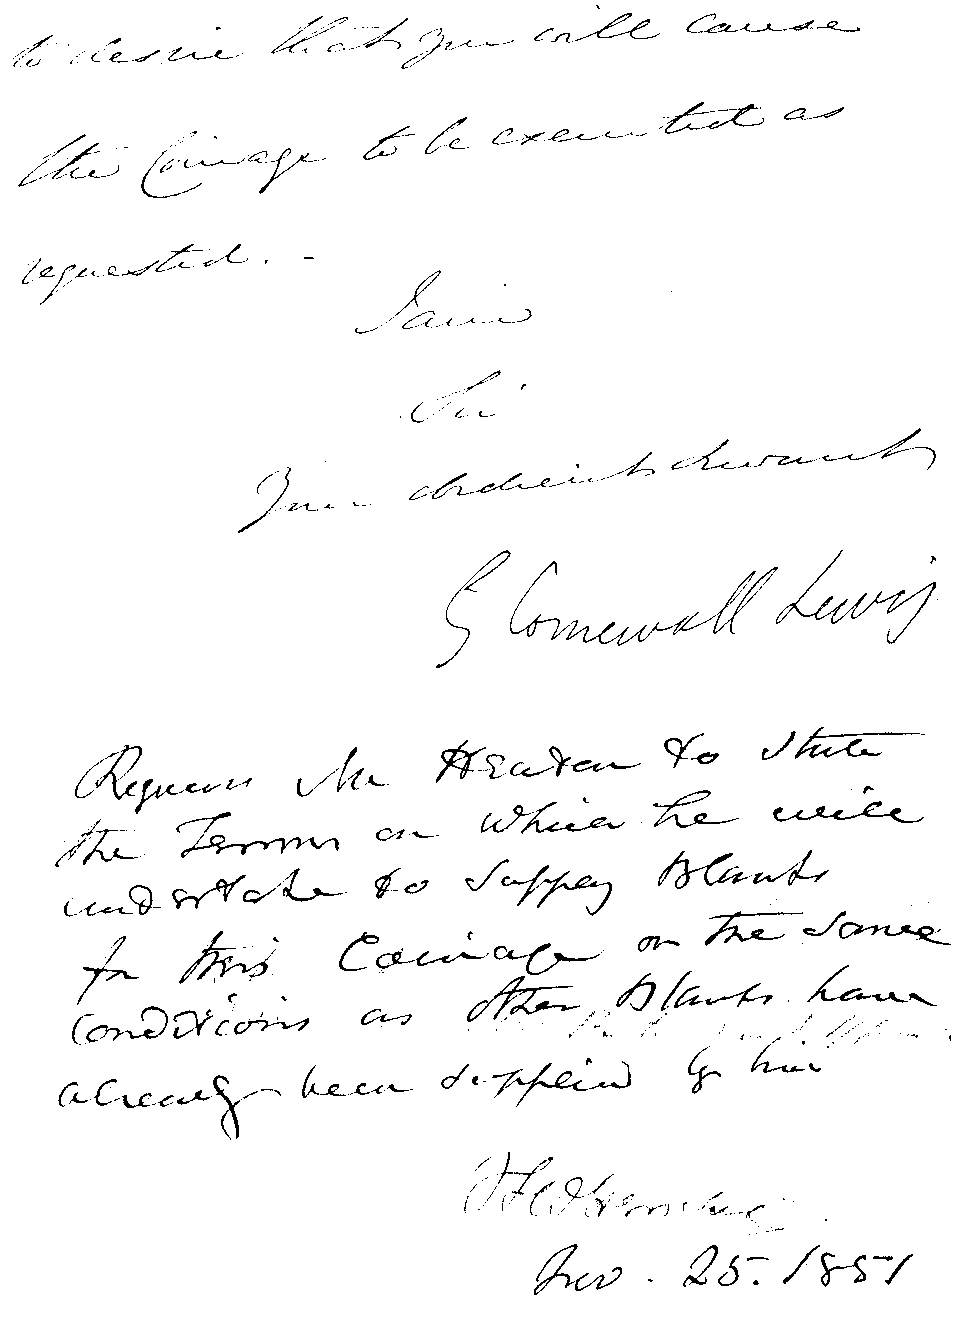 to desire that you will cause
the Coinage to be executed as
requested. -
I am
Sir
Your obedient Servant
G Cornewall Lewis
Request Mr Heaton to State
the Terms on which he will
undertake to supply Blanks
for this Coinage on the same
Conditions as other Blanks have
already been supplied by him
JFW Herschel
Nov. 25. 1851